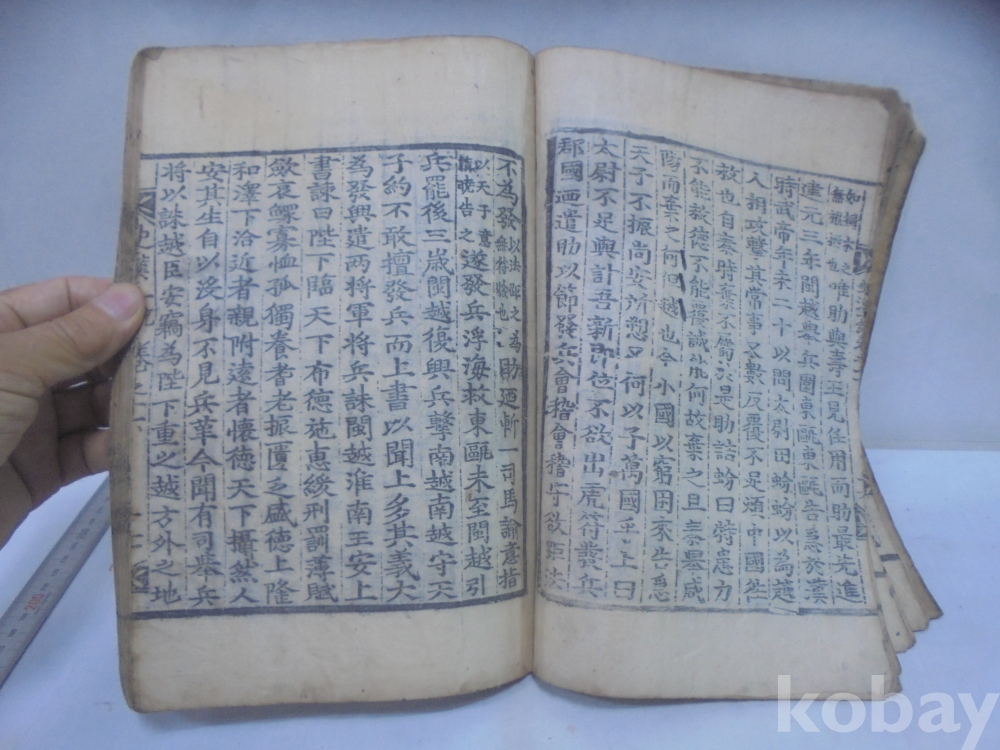 如樹木之無根柢也唯助與壽王見任用而助最先進
建元三年閩越舉兵圍東甌東甌告急於漢
時武帝年未二十以問太尉田蚡蚡以為越
人相攻擊其常事又數反覆不足煩中國往
救也自秦時棄不屬於是助詰蚡曰特患力
不能救德不能覆誠能何故棄之且秦舉咸
陽而棄之何但越也今小國以窮困來告急
天子不振尚安所愬又何以子萬國乎上曰
太尉不足與計吾新即位不欲出虎符發兵
郡國迺遣助以節發兵會稽會稽守欲距法
不為發以法距之為無符驗也助迺斬一司馬諭意指
以天子意指曉告之遂發兵浮海救東甌未至閩越引
兵罷後三歲閩越復興兵擊南越南越守天
子約不敢擅發兵而上書以聞上多其義大
為發興遣兩將軍將兵誅閩越淮南王安上
書諫曰陛下臨天下布德施惠緩刑罰薄賦
斂哀鰥寡恤孤獨養耆老振匱乏盛德上隆
和澤下洽近者親附遠者懷德天下攝然人
安其生自以沒身不見兵革今聞有司舉兵
將以誅越臣安竊為陛下重之越方外之地
kobay